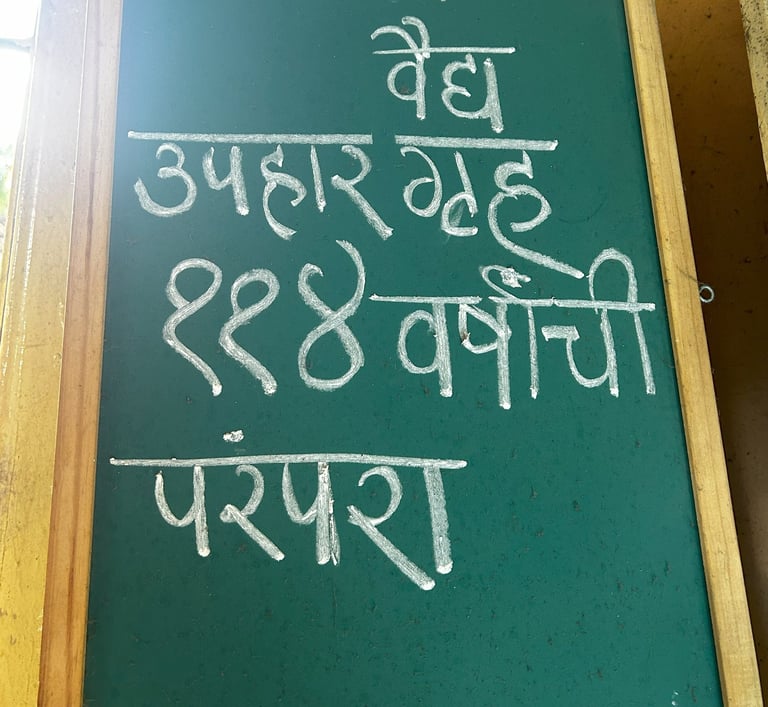 वैद्य
उपहार गृह
११४ वर्षांची
परंपरा